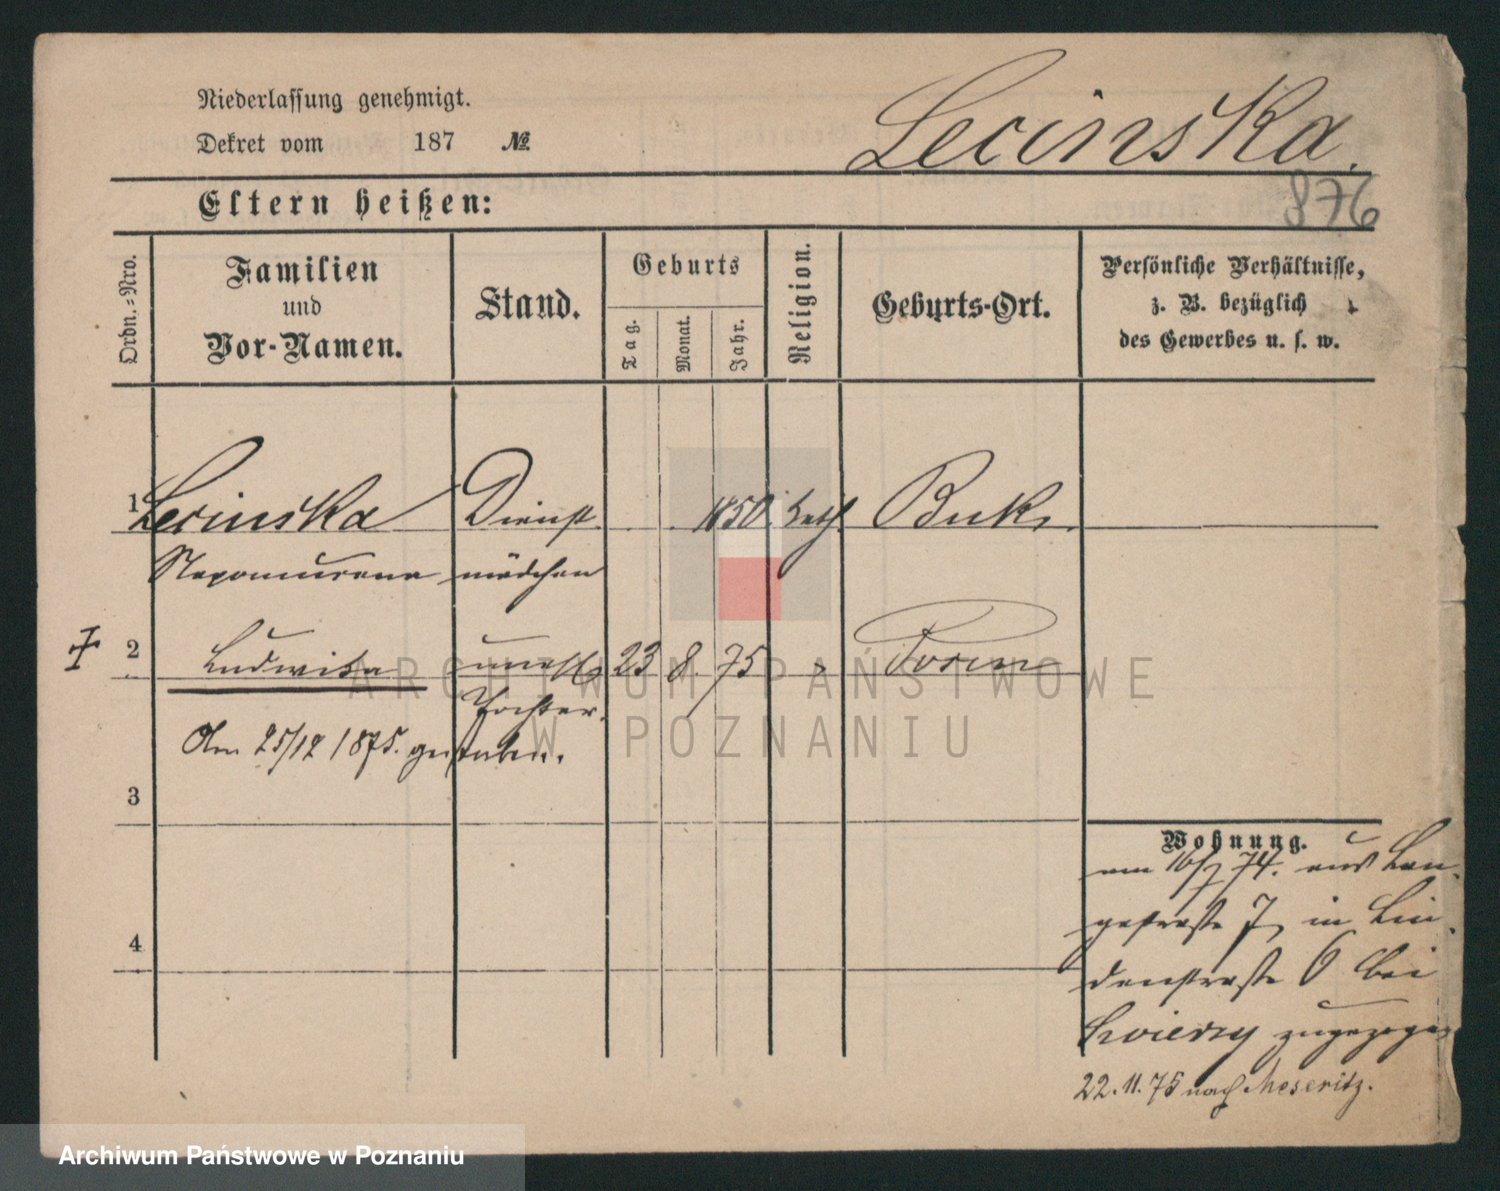 Niederlassung genehmigt.
Dekret vom 187 №
Lecinska.
876
Eltern heißen:
Ordn.=Nro.
Familien
und
Vor-Namen.
Stand.
Geburts
Tag.
Monat.
Jahr.
Religion.
Geburts-Ort.
Persönliche Verhältnisse,
z. B. bezüglich
des Gewerbes u. s. w.
1 Lecinska Dienst 1850. kath. Buk,
Nepomucena mädchen
2 Ludwika unehl 23 8. 75 " Posen
Tochter.
Am 25/12 1875. gestorben.
3
4
Wohnung.
am 16/7 74. aus Lan-
gestraße 7, in Lin-
denstraße 6 bei
zugezogen
22. 11. 75 nach Meseritz.
ARCHIWUM PAŃSTWOWE
W POZNANIU
Archiwum Państwowe w Poznaniu